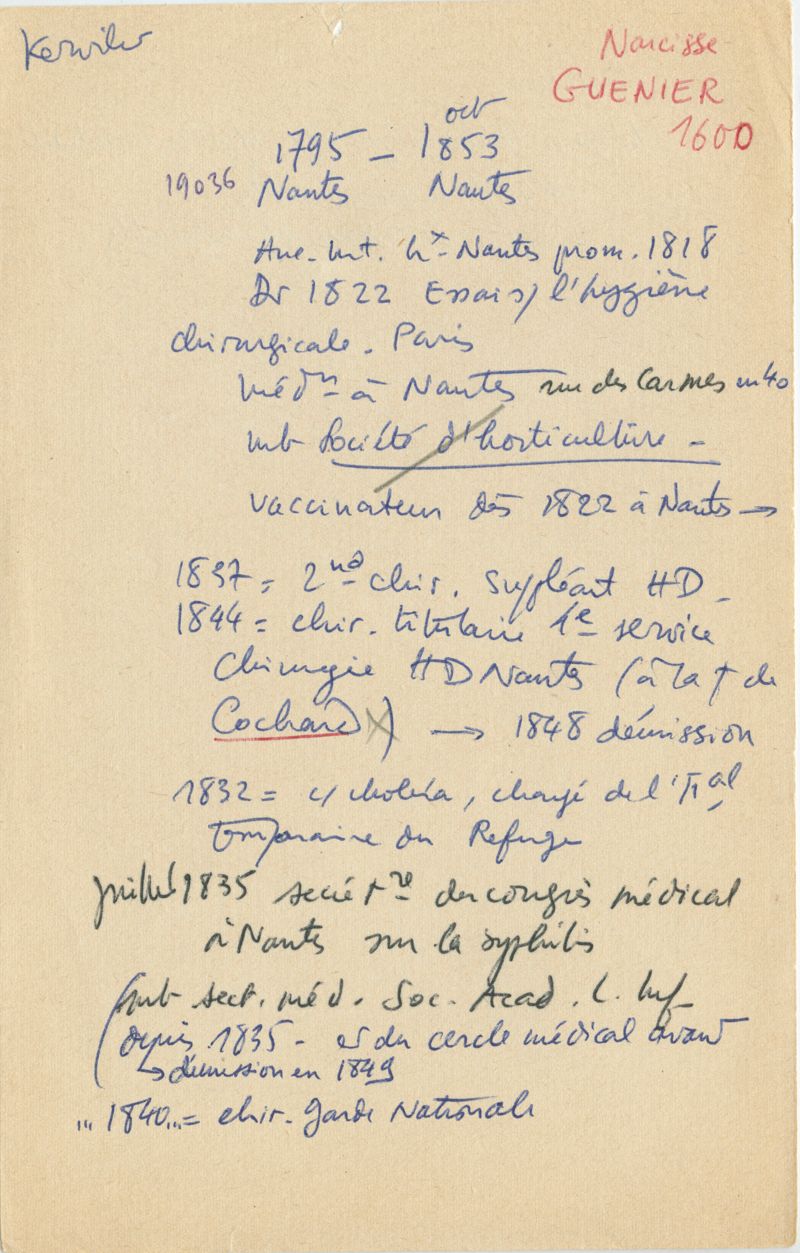 Kerviler
Narcisse
GUENIER
1600
oct
1795 – 1853
19036 Nantes Nantes
Anc. Int. hx Nantes prom. 1818
Dr 1822 Essai s/ l'hygiène
chirurgicale. Paris
médn à Nantes rue des Carmes en 40
mb Société d'horticulture –
vaccinateur dès 1822 à Nantes →
1837 = 2nd chir. suppléant HD –
1844 = chir. titulaire 1e service
Chirurgie HD Nantes (à la † de
Cochard) → 1848 démission
1832 = c/ choléra, chargé de l'
temporaire du Refuge
Juillet 1835 secrétre du congrès médical
à Nantes sur la syphilis
(mb sect. méd. Soc. Acad. L. Inf
depuis 1835 – et du cercle médical avant
→ démission en 1849
... 1840... = chir. Garde Nationale